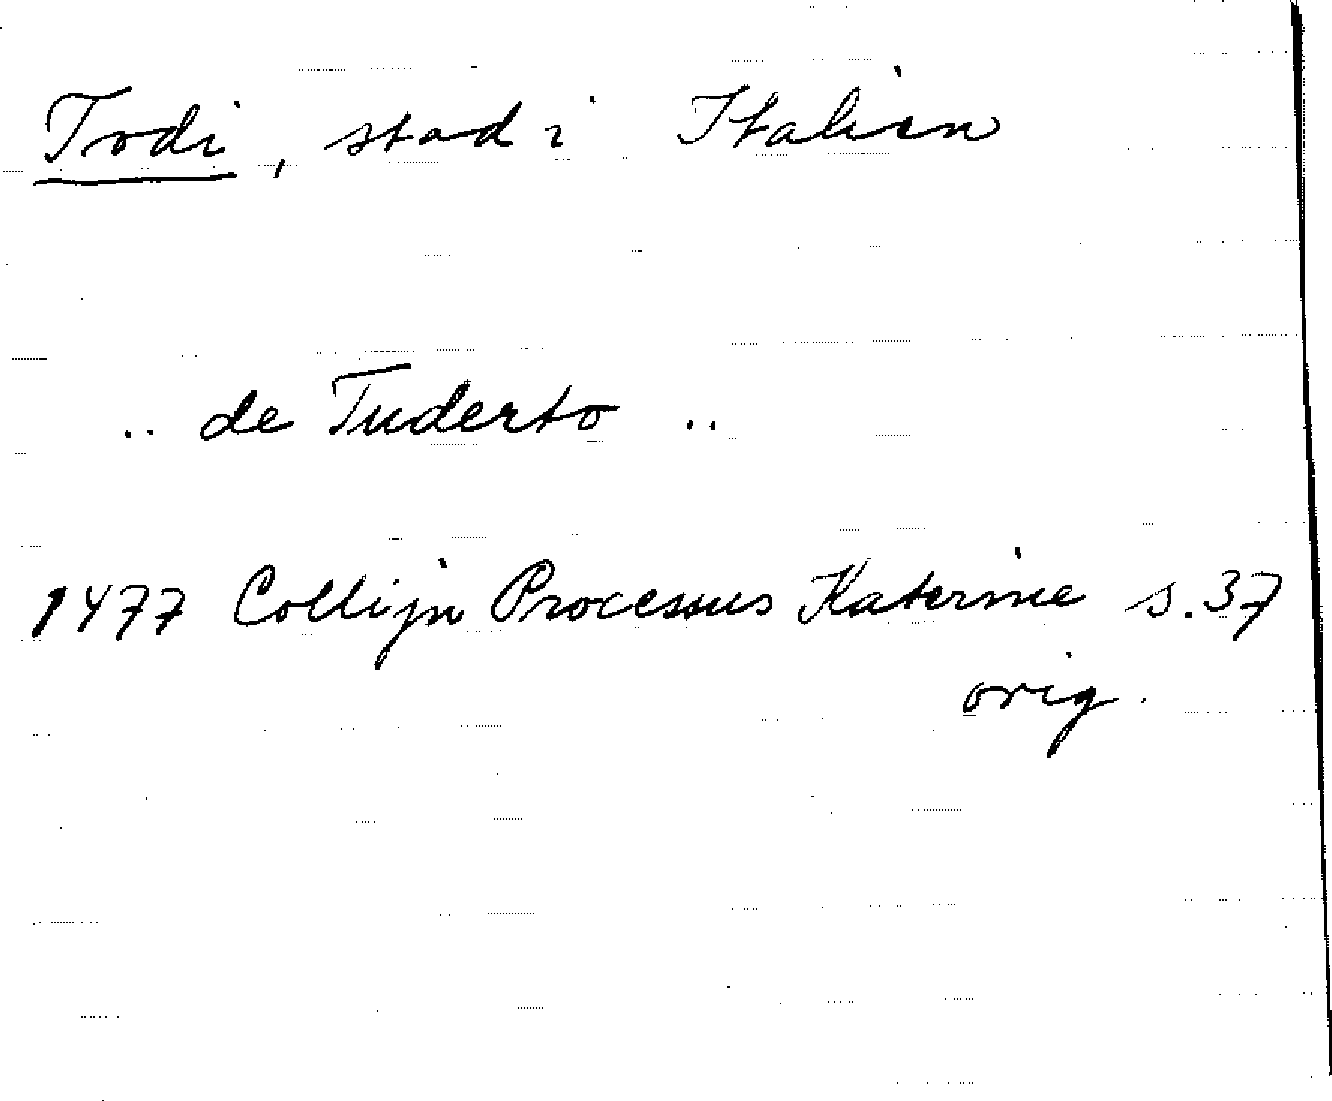 Todi, stad i Italien
.. de Tuderto ..
1477 Collijn Processus Katerine s. 37
orig.